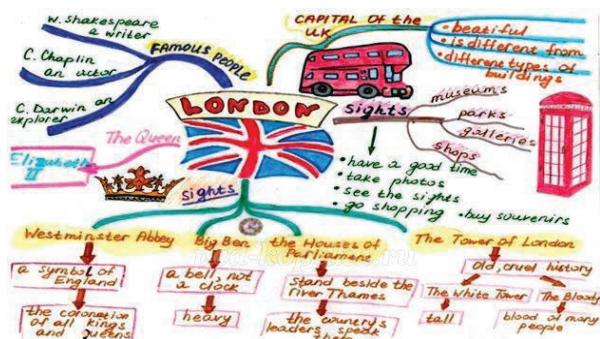 W. Shakespeare
a writer
C. Chaplin
an actor
C. Darwin an
explorer
FAMOUS PEOPLE
CAPITAL Of the
UK
• beatiful
• is different from
• different types of
buildings
LONDON
The Queen
Elizabeth
II
sights
museums
parks
galleries
shops
• have a good time
• take photos
• see the sights
• go shopping • buy souvenirs
sights
Westminster Abbey
a symbol of
England
the coronation
of all kings
and queens
Big Ben
a bell, not
a clock
heavy
the Houses of
Parliament
stand beside the
river Thames
the country's
leaders speak
The Tower of London
old, cruel history
The White Tower
tall
The Bloody
blood of many
people